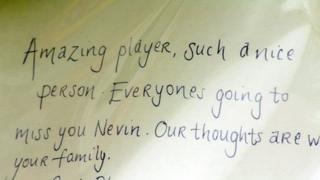 Amazing player, such a nice
person. Everyones going to
miss you Nevin. Our thoughts are w
your family.